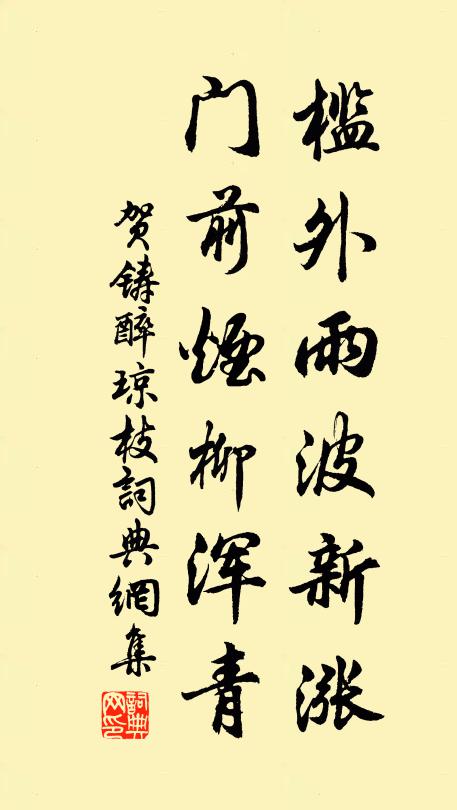 槛外雨波新涨
门前烟柳浑青
贺铸醉琼枝词典網集
詞典網印